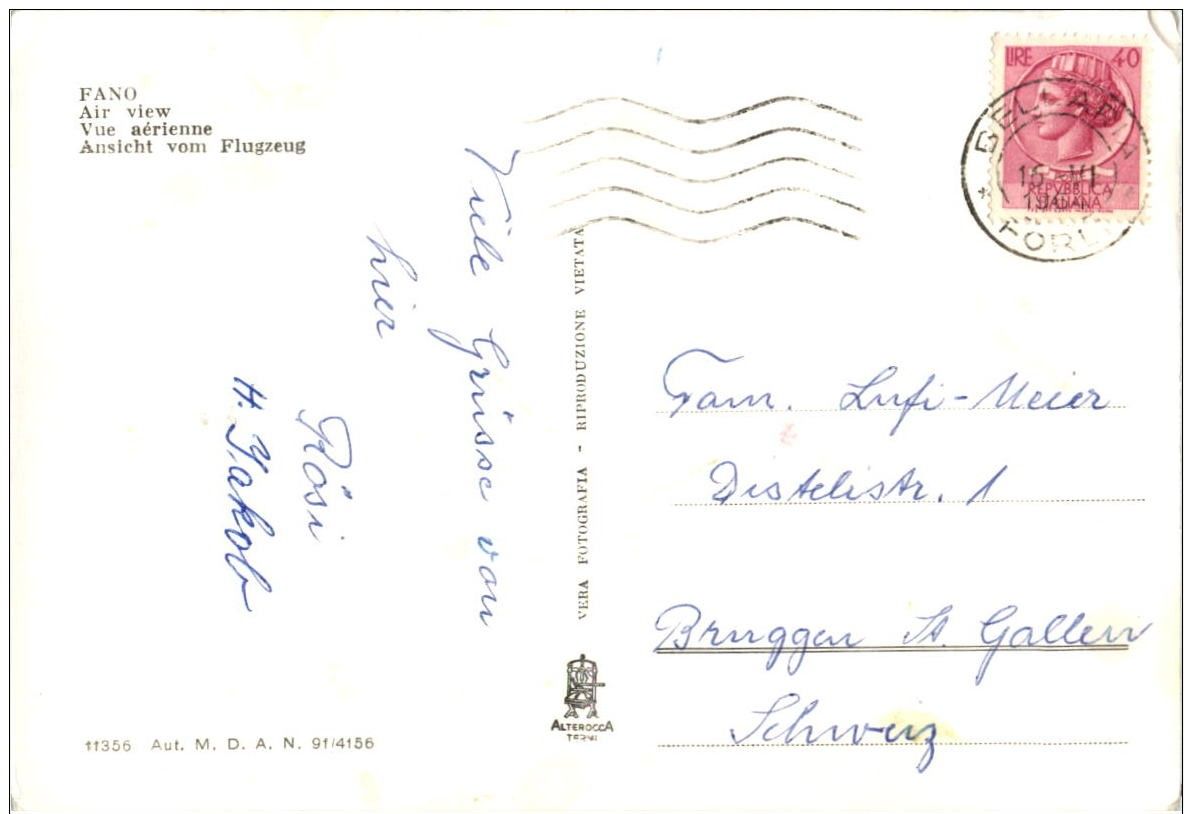 FANO
Air view
Vue aérienne
Ansicht vom Flugzeug
Viele Grüsse von
hier
Rösi
H. Jakob
11356 Aut. M. D. A. N. 91/4156
VERA FOTOGRAFIA - RIPRODUZIONE VIETATA
ALTEROCCA
TERNI
LIRE 40
REPVBBLICA
ITALIANA
BELLARIA
FORLI
Fam. Lufi-Meier
Distelistr. 1
Bruggen St. Gallen
Schweiz